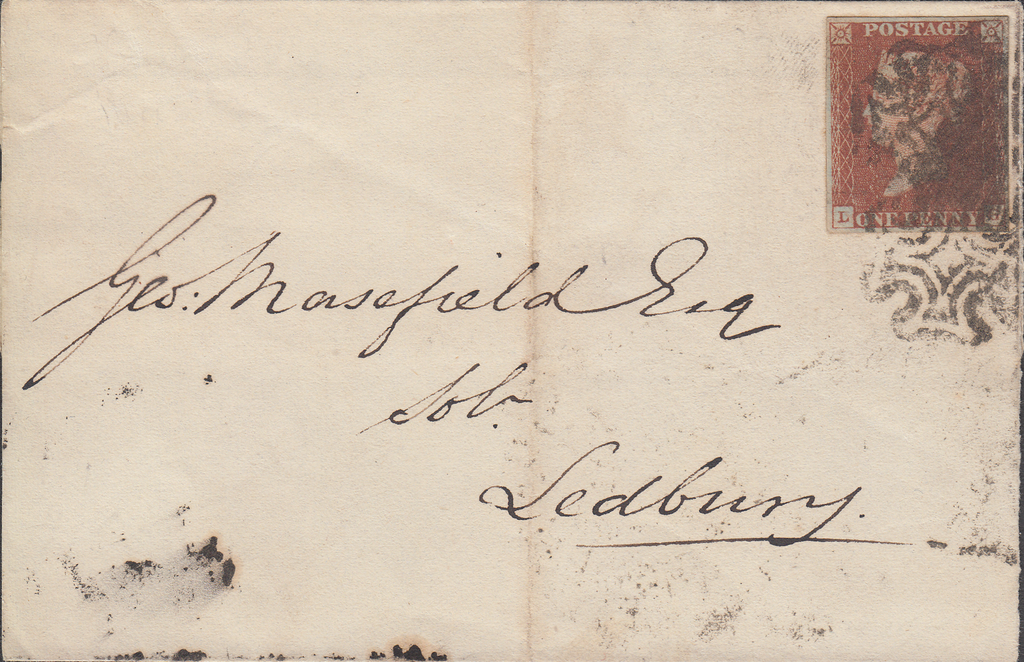 POSTAGE
L ONE PENNY H
Geo: Masefield Esq
Solr.
Ledbury.